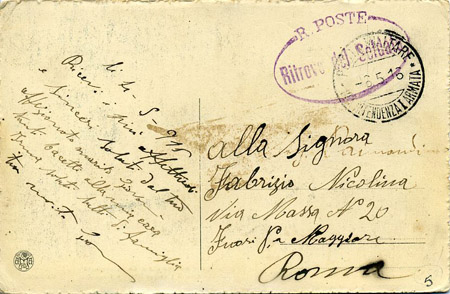 R. POSTE
Ritrovo del Soldato
POSTA MILITARE
INTENDENZA I ARMATA
6.5.16
li 4-5-916
Ricevi i miei affettuosi
e sinceri saluti dal tuo
affezionato marito
tanti bacetti alla cara
saluti tutti di famiglia
tuo
Alla Signora
Fabrizio Nicolina
Via Massa N° 20
Fuori P.a Maggiore
Roma
5